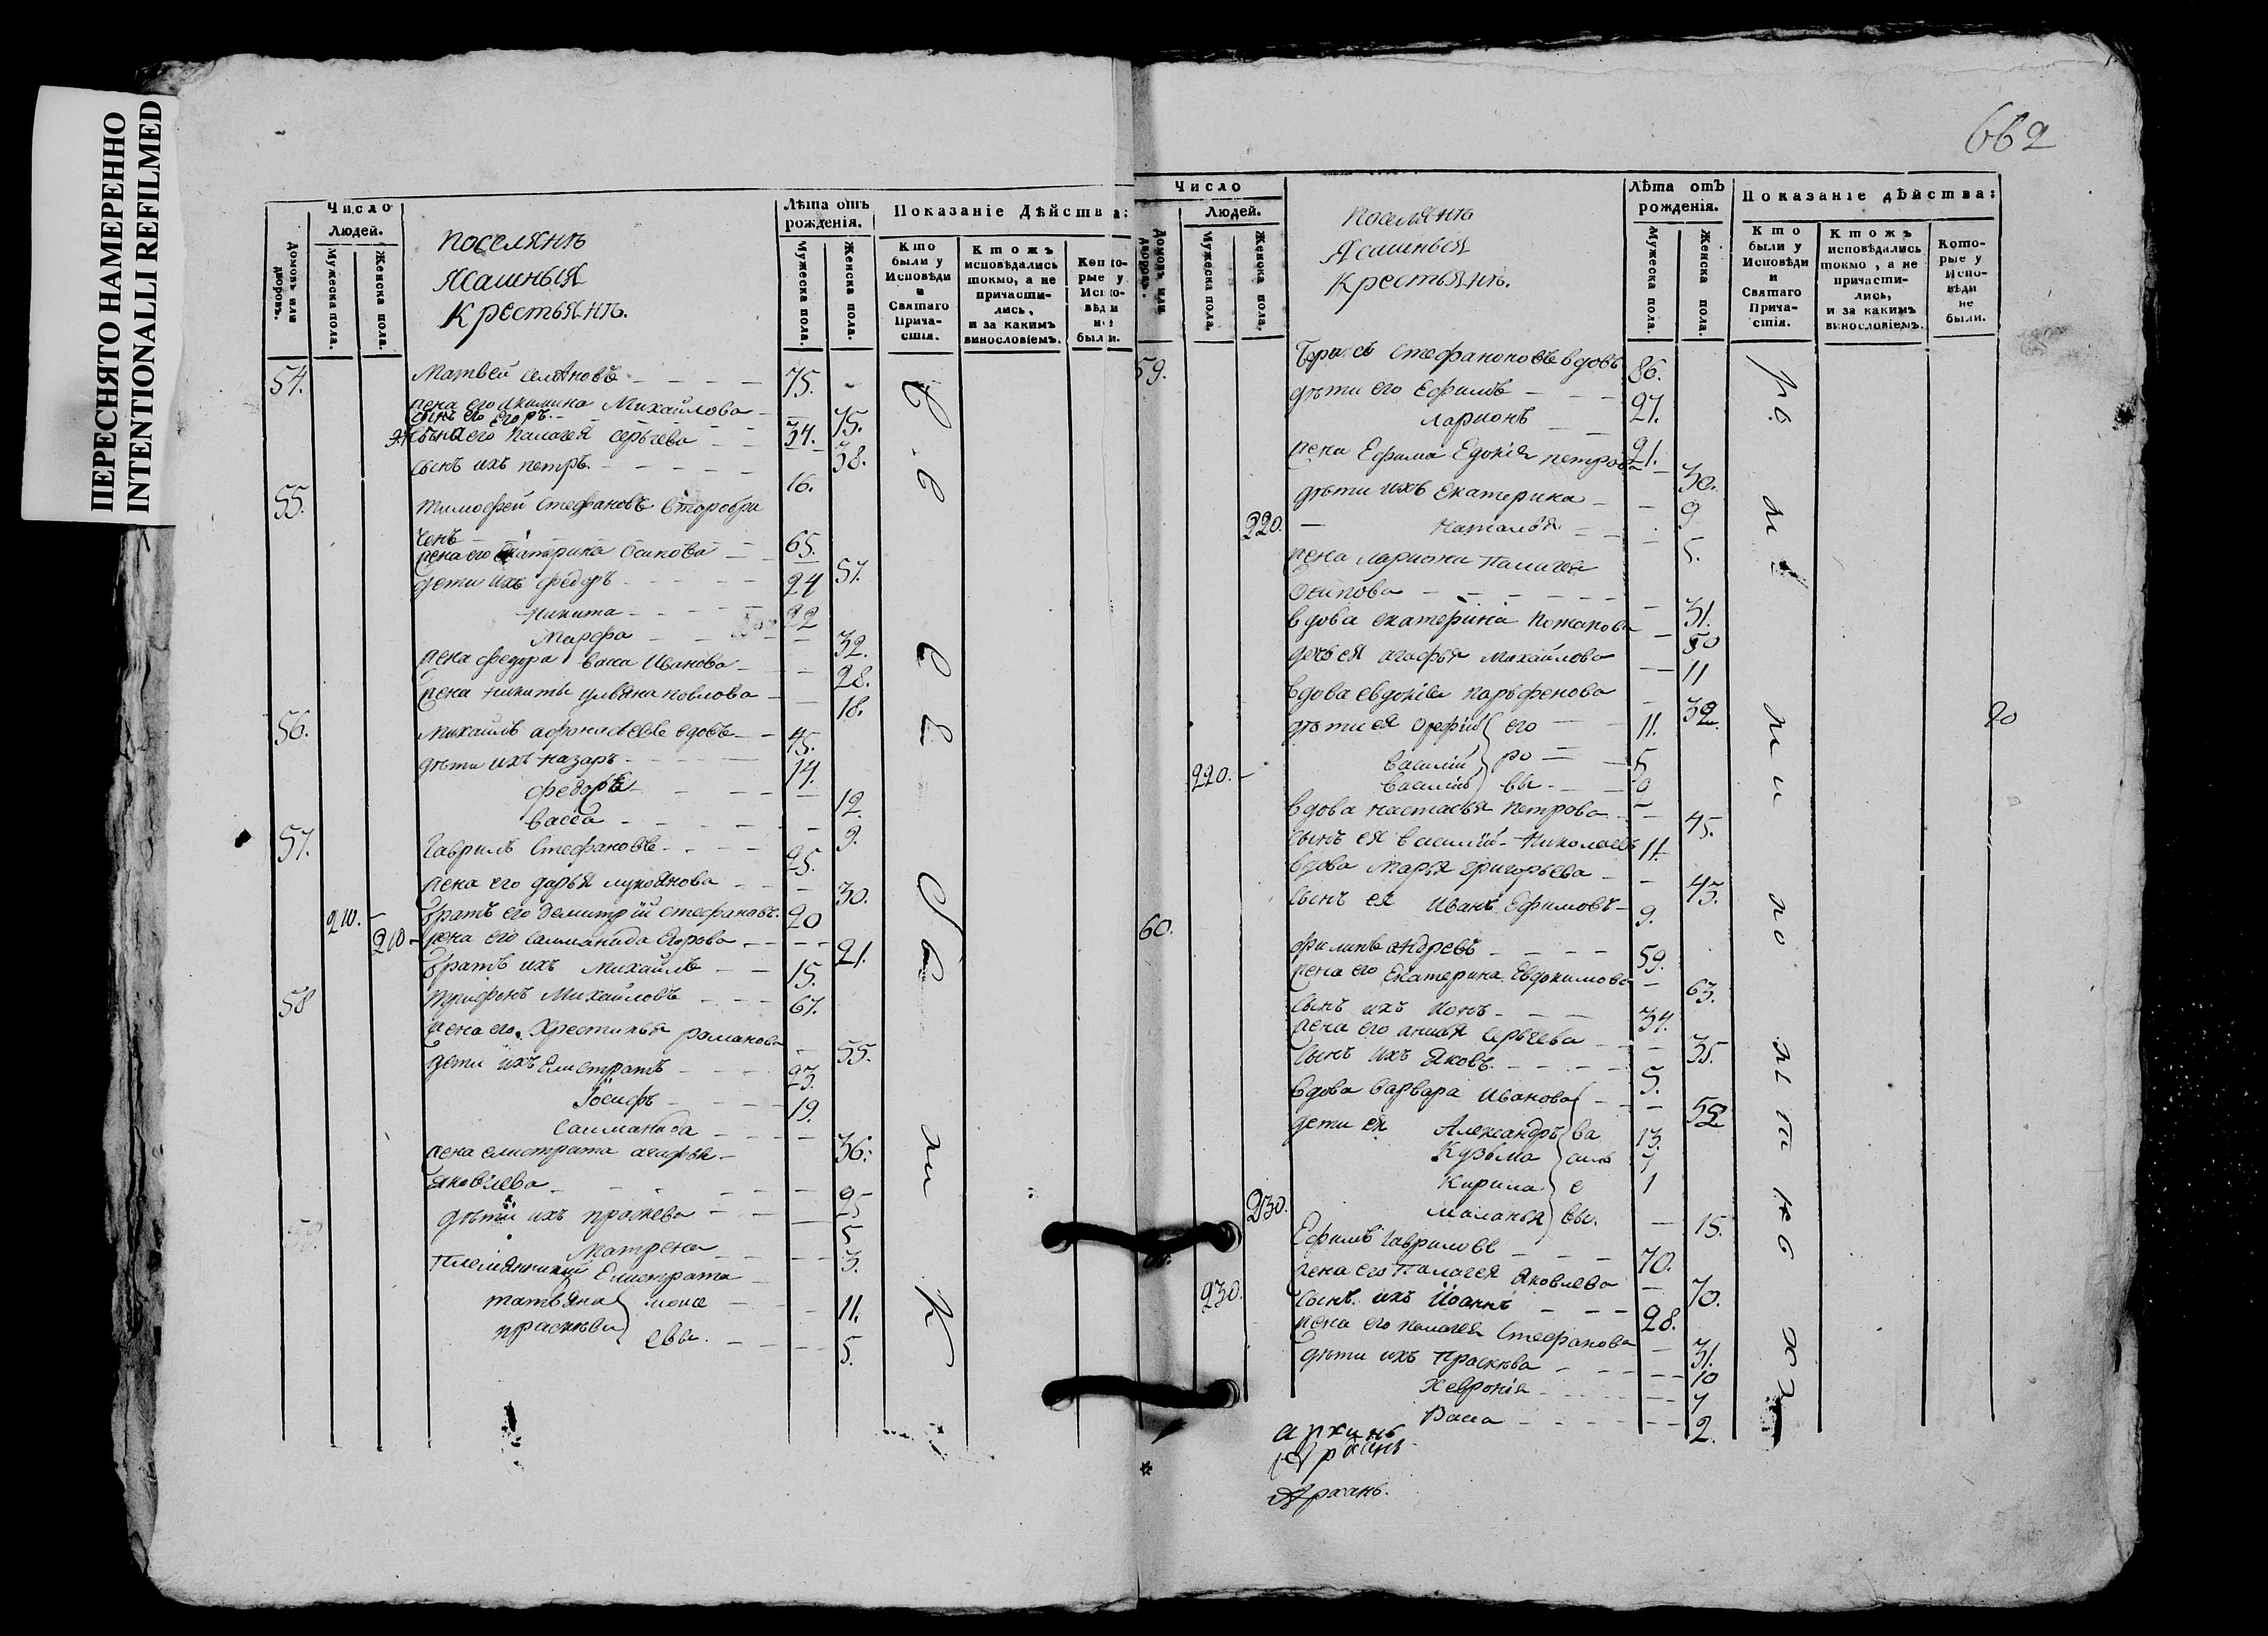 ПЕРЕСНЯТО НАМЕРЕННО
INTENTIONALLI REFILMED
Число
Людей.
Домовъ или дворовъ.
Мужеска пола.
Женска пола.
поселянъ
Ясашныя
Крестьянъ.
Лѣта отъ рожденія.
Мужеска пола.
Женска пола.
Показаніе Дѣйства:
Кто были у Исповѣди и Святаго Причастія.
Ктожъ исповѣдались токмо, а не причастились, и за какимъ винословіемъ.
Которые у Исповѣди не были.
54. Матвей Селяновъ 75.
жена его Акилина Михайлова 75.
сынъ его Егоръ 34.
жена его Палагея Серьгева 38.
сынъ ихъ петръ 16.
55. Тимофей Стефановъ Старобра
ченъ 65.
жена его Екатерина Осипова 57.
дети ихъ федоръ 24
Никита 22
Марфа 32.
жена федора васса Иванова 28.
жена Никиты ульяна павлова 18.
56. Михаилъ афонасьевъ вдовъ 45.
дѣти ихъ назаръ 14.
федора 12.
васса 9.
57. Гаврилъ Стефановъ 25.
жена его дарья лукоянова 30.
210. братъ его демитрий стефановъ 20
210 жена его Саломанида Егорова 21.
братъ ихъ Михаилъ 15.
58 трифонъ Михайловъ 67.
жена его Хрестинья романова 55.
дети ихъ Елистратъ 23.
Іосифъ 19.
Саломанида 36.
жена елистрата агафья
Яковлева 25
дѣти ихъ прасковья 5
Матрена 3.
племянницы Елистрата
татьяна моисе 11.
прасковья евы. 5.
662
Число
Людей.
Домовъ или дворовъ.
Мужеска пола.
Женска пола.
поселянъ
Ясашныя
Крестьянъ.
Лѣта отъ рожденія.
Мужеска пола.
Женска пола.
Показаніе дѣйства:
Кто были у Исповѣди и Святаго Причастія.
Ктожъ исповѣдались токмо, а не причастились, и за какимъ винословіемъ.
Которые у Исповѣди не были.
59. Борисъ Стефановъ вдовъ 86.
дѣти его Ефимъ 27.
Ларионъ 21.
жена Ефима Едокія петрова 30.
дѣти ихъ Екатерина 9
220. Наталья 5.
жена Лариона Палагея
Осипова 31.
вдова екатерина Потапова 50
дочь ея агафья Михайлова 11
вдова евдокія парфенова 32.
дѣти ея Орефій его 11.
василій ро 5
220. василій вы 9
вдова настасья петрова 45.
сынъ ея василий Николаевъ 11.
вдова Марья григорьева 43.
сынъ ея Иванъ Ефимовъ 9.
60. филипъ андревъ 59.
жена его Екатерина Евдокимова 63.
сынъ ихъ Ионъ 34.
жена его анна Серьгева 35.
сынъ ихъ Яковъ 5.
вдова варвара Иванова 52
дети ея Александръ ва 13.
Кузьма силь 7
Кирила е 1
230. Маланья вы. 15.
Ефимъ Гавриловъ 70.
жена его Палагея Яковлева 70.
230. сынъ ихъ Іоаннъ 28.
жена его палагея Стефанова 31.
дѣти ихъ Праскева 10
Хеврония 7
Васса 2.
20